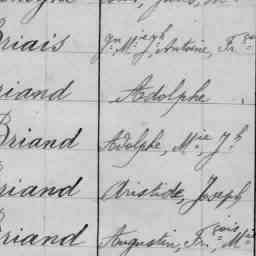 Briais Jn Mie Jph Antoine, Fr.çois
Briand Adolphe
Briand Adolphe, Mie, Jh
Briand Aristide, Joseph
Briand Augustin, Fr.çois, Mie